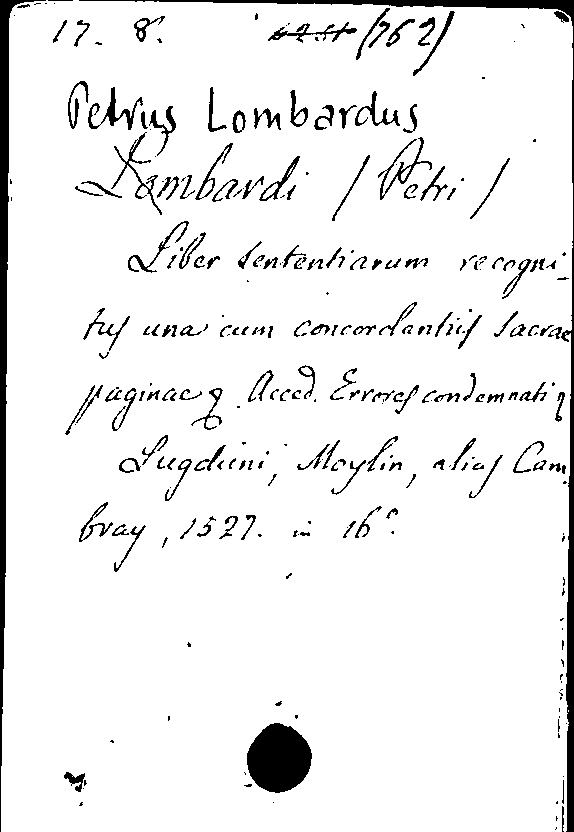 17. 8. (762)
Petrus Lombardus
Lombardi / Petri /
Liber sententiarum recogni-
tus una cum concordantiis sacrae
paginae Acced. Errores condemnati
Lugduni, Moylin, alias Cam
bray, 1527. in 16°.